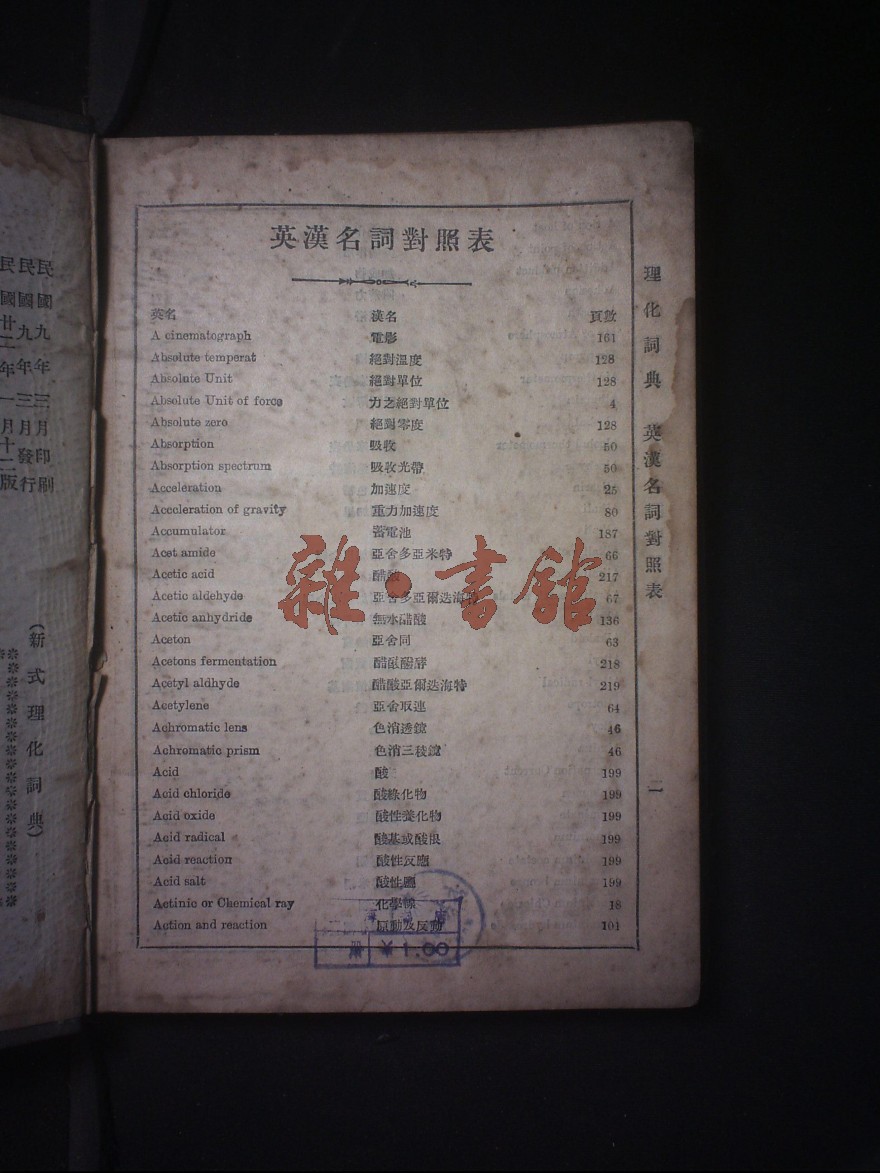 英漢名詞對照表
英名 漢名 頁數
A cinematograph 電影 161
Absolute temperat 絕對溫度 128
Absolute Unit 絕對單位 128
Absolute Unit of force 力之絕對單位 4
Absolute zero 絕對零度 128
Absorption 吸收 50
Absorption spectrum 吸收光帶 50
Acceleration 加速度 25
Acceleration of gravity 重力加速度 80
Accumulator 蓄電池 187
Acet amide 亞舍多亞米特 66
Acetic acid 醋酸 217
Acetic aldehyde 亞舍多亞爾迭海特 67
Acetic anhydride 無水醋酸 136
Aceton 亞舍同 63
Acetons fermentation 醋酸醱酵 218
Acetyl aldhyde 醋酸亞爾迭海特 219
Acetylene 亞舍取連 64
Achromatic lens 色消透鏡 46
Achromatic prism 色消三稜鏡 46
Acid 酸 199
Acid chloride 酸綠化物 199
Acid oxide 酸性養化物 199
Acid radical 酸基或酸根 199
Acid reaction 酸性反應 199
Acid salt 酸性鹽 199
Actinic or Chemical ray 化學線 18
Action and reaction 原動及反動 101
理化詞典 英漢名詞對照表
二
民國九年三月印刷
民國九年三月發行
民國廿二年一月十二版
(新式理化詞典)
雜·書館
1.00